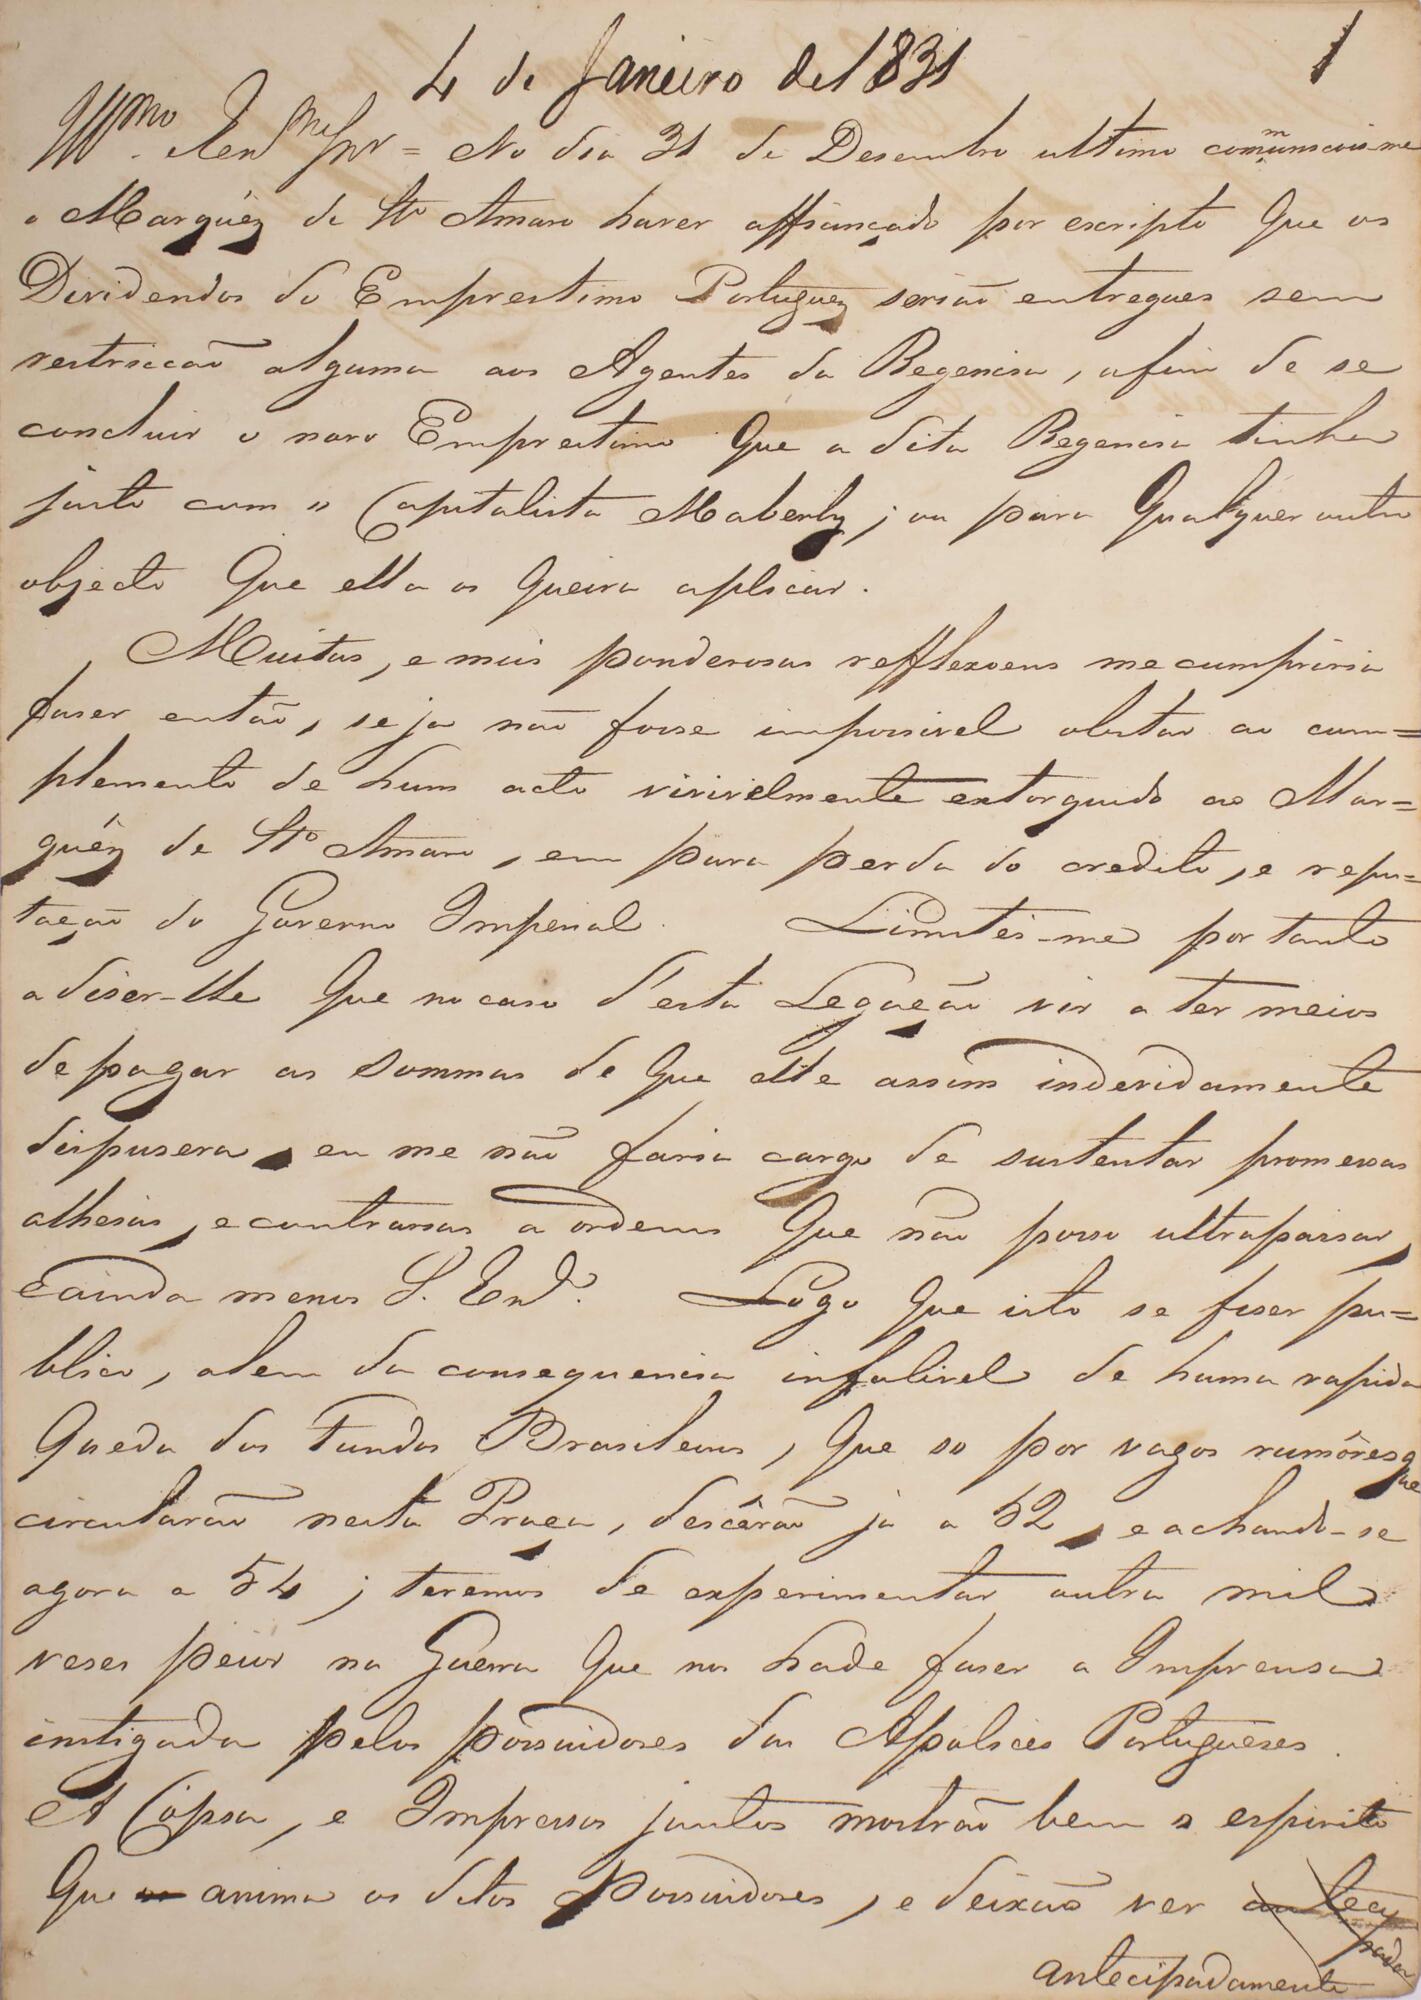 4 de Janeiro de 1831
1
Illmo. e Exmo. Snr = No dia 31 de Desembro ultimo communicou-me
o Marquêz de Sto Amaro haver affiançado por escripto que os
Dividendos do Emprestimo Portuguez serião entregues sem
restricção alguma aos Agentes da Regencia, afim de se
concluir o novo Emprestimo que a dita Regencia tinha
justo com o Capitalista Maberly; ou para qualquer outro
objecto que ella os queira aplicar.
Muitas, e mui ponderosas refflexoens me cumpriria
faser então, se ja não fosse impossivel obstar ao com=
plemento de hum acto visivelmente extorquido ao Mar=
quêz de Sto Amaro, em pura perda do credito, e repu=
tação do Governo Imperial. Limitei-me portanto
a diser-lhe que no caso d'esta Legação vir a ter meios
de pagar as sommas de que elle assim indevidamente
dispusera, eu me não faria cargo de sustentar promessas
alheias, e contrarias a ordens que não posso ultrapassar,
e ainda menos S. Exa. Logo que isto se fiser pu=
blico, alem da consequencia infalivel de huma rapida
queda dos Fundos Brasileiros, que so por vagos rumôres que
circularão nesta Praça, descêrão ja a 52, e achando-se
agora a 54; teremos de experimentar outra mil
veses peior na Guerra que nos hade faser a Imprensa
instigada pelos possuidores das Apolices Portuguesas.
A Copia, e Impressos juntos mostrão bem o espirito
que anima os ditos Possuidores, e deixão ver anteci
padam
antecipadamente